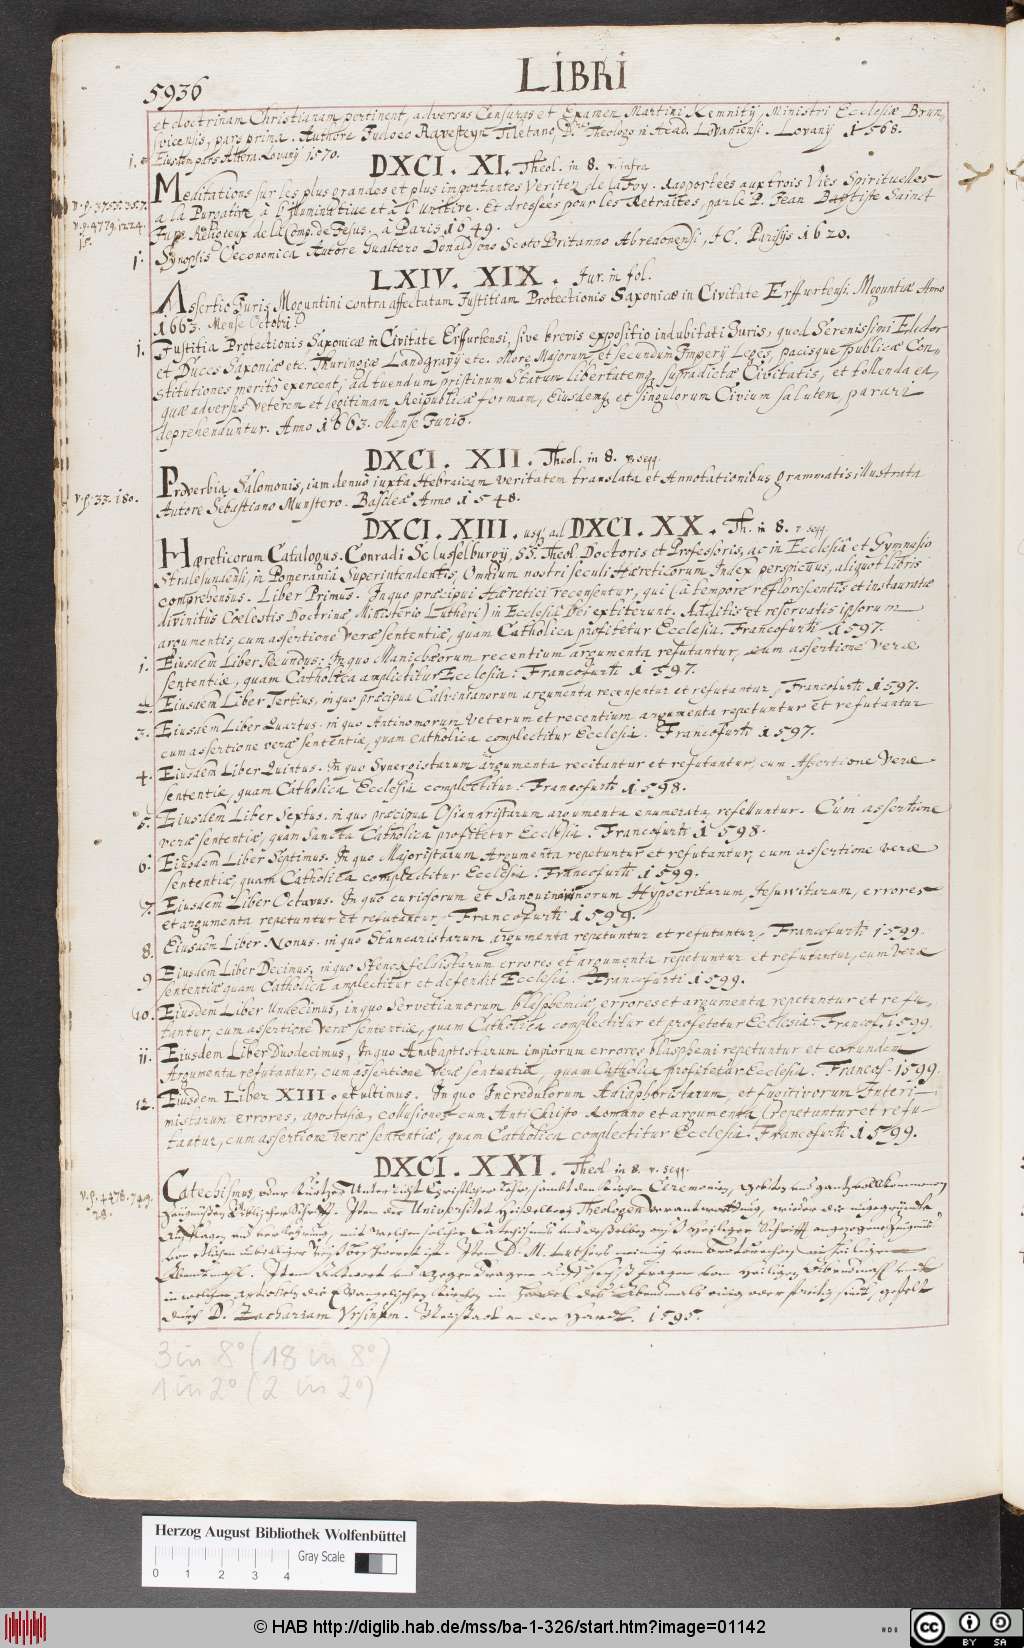 LIBRI
5936
et doctrinam Christianam pertinent, adversus Censuras et Examen Martini Kemnitij, Ministri Ecclesiæ Bruns
vicensis, pars prima. Authore Judoco Ravesteyn Tiletano, Theologo in Acad. Lovaniensi. Lovanij 1568.
1. Eiusdem pars Altera. Lovanij 1570.
DXCI. XI. Theol. in 8. v. infra
Meditations sur les plus grandes et plus importantes Veritez de la Foy. Rapportées aux trois Vies Spirituelles
v. p. 3755. 357.
a la Purgative à l'Illuminative et à l'Unitive. Et dressées pour les Retraittes, par le P. Jean Baptiste Sainct
v. p. 4779. 1224.
Jure Religieux de la Comp. de Jesus. à Paris 1649.
15.
1. Synopsis Œconomica Autore Gualtero Donaldsono Scoto Britanno Abredonensi, JC. Parisijs 1620.
LXIV. XIX. Jur. in fol.
Assertio Juris Moguntini contra affectatam Justitiam Protectionis Saxonicæ in Civitate Erffurtensi. Moguntiæ Anno
1663. Mense Octobri.
1. Justitia Protectionis Saxonicæ in Civitate Erffurtensi, sive brevis expositio indubitati Juris, quod Serenissimi Elector
et Duces Saxoniæ etc. Thuringiæ Landgravij etc. More Majorum, et secundum Imperij Leges, pacisque publicæ Con-
stitutiones merito exercent, ad tuendum pristinum Statum libertatemq supradictæ Civitatis, et tollenda ea,
quæ adversus Veterem et legitimam Reipublicæ formam, Eiusdemq et singulorum Civium salutem, parari
deprehenduntur. Anno 1663. Mense Junio.
DXCI. XII. Theol. in 8. v. seqq.
Proverbia Salomonis, iam denuo iuxta Hebraicam veritatem translata et Annotationibus grammatis illustrata
v. p. 33. 180.
Autore Sebastiano Munstero. Basileæ Anno 1548.
DXCI. XIII. usq ad DXCI. XX. Th. in 8. v. seqq.
Hæreticorum Catalogus. Conradi Schlusselburgij, SS. Theol. Doctoris et Professoris, ac in Ecclesiâ et Gymnasio
Stralesundensi, in Pomerania Superintendentis, Omnium nostri seculi Hæreticorum Index perspicuus, aliquot libris
comprehensus. Liber Primus. In quo præcipui Hæretici recensentur, qui (a tempore reflorescentis et instauratæ
divinitus Coelestis Doctrinæ Ministerio Lutheri) in Ecclesiâ Dei extiterunt. Additis et reservatis ipsorum
argumentis, cum assertione veræ sententiæ, quam Catholica profitetur Ecclesia. Francofurti 1597.
1. Eiusdem Liber Secundus. In quo Manichæorum recentium argumenta refutantur, cum assertione veræ
sententiæ, quam Catholica amplectitur Ecclesia. Francofurti 1597.
2. Eiusdem Liber Tertius, in quo præcipua Calvinianorum argumenta recensentur et refutantur, Francofurti 1597.
3. Eiusdem Liber Quartus. in quo Antinomorum Veterum et recentium argumenta repetuntur et refutantur
cum assertione veræ sententiæ, quam catholica complectitur Ecclesia. Francofurti 1597.
4. Eiusdem Liber Quintus. In quo Synergistarum argumenta recitantur et refutantur, cum Assertione Veræ
sententiæ, quam Catholica Ecclesia complectitur. Francofurti 1598.
5. Eiusdem Liber Sextus. in quo præcipua Osiandristarum argumenta enumerata refelluntur. Cum assertione
veræ sententiæ, quam Sancta Catholica profitetur Ecclesia. Francofurti 1598.
6. Eiusdem Liber Septimus. In quo Majoristarum Argumenta repetuntur et refutantur, cum assertione veræ
sententiæ, quam Catholica complectitur Ecclesia. Francofurti 1599.
7. Eiusdem Liber Octavus. In quo curiosorum et Sanguinariorum Hypocritarum, Jesuwitarum, errores
et argumenta repetuntur et refutantur. Francofurti 1599.
8. Eiusdem Liber Nonus. in quo Stancaristarum argumenta repetuntur et refutantur. Francofurti 1599.
9 Eiusdem Liber Decimus, in quo Stenckfeldistarum errores et argumenta repetuntur et refutantur, cum Veræ
sententiæ quam Catholica amplectitur et defendit Ecclesia. Francofurti 1599.
10. Eiusdem Liber Undecimus, in quo Servetianorum blasphemiæ, errores et argumenta repetuntur et refu-
tantur, cum assertione Veræ sententiæ, quam Catholica complectitur et profitetur Ecclesia. Francof. 1599.
11. Eiusdem Liber Duodecimus, In quo Anabaptistarum impiorum errores blasphemi repetuntur et eorundem
Argumenta refutantur, cum assertione Veræ sententiæ, quam Catholica profitetur Ecclesia. Francof. 1599.
12. Eiusdem Liber XIII. et ultimus. In quo Incredulorum Adiaphoristarum, et fugitivorum Interi-
mistarum errores, apostasiæ, collusiones cum AntiChristo Romano et argumenta (repetuntur et refu-
tantur, cum assertione veræ sententiæ, quam Catholica complectitur Ecclesia. Francofurti 1599.
DXCI. XXI. Theol in 8. v. seqq.
v. p. 4478. 749.
28.
Catechismus, oder Kurtzer Unterricht Christlicher Lehr, sambt den Kirchen Ceremonien, Gebeten und
Zeugnissen Biblischer Schrifft. Item der Universitet Heidelberg Theologen Verantwortung, wieder die ungegründte
Aufflagen und verkehrung, mit welchen solcher Catechismus und desselben auß Heiliger Schrifft angezogne Zeugnus
D. M. Lutheri meinung vom
Abendmahl. Item Antwort und
durch D. Zachariam Ursinum. Neustadt an der Hardt. 1595.
3 in 8° (18 in 8°)
1 in 2° (2 in 2°)
Herzog August Bibliothek Wolfenbüttel
Gray Scale
0 1 2 3 4
© HAB http://diglib.hab.de/mss/ba-1-326/start.htm?image=01142
HAB
cc BY SA